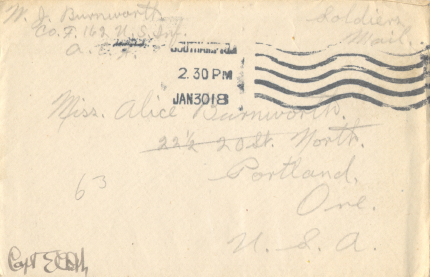 W. J. Burnworth
Co. F. 162 U.S. Inf.
A. E. F.
Soldiers
Mail.
2.30 PM
JAN 30 18
Miss. Alice Burnworth.
22½ 20 St. North.
Portland.
Ore.
U. S. A.
63
Capt